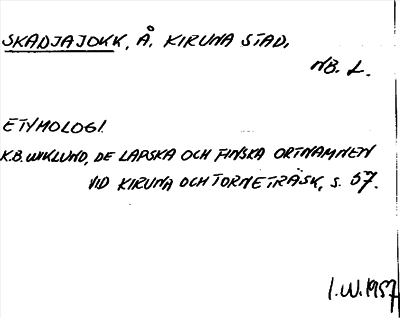 SKADJAJOKK, Å. KIRUNA STAD,
NB. L.
ETYMOLOGI.
K.B. WIKLUND, DE LAPSKA OCH FINSKA ORTNAMNEN
VID KIRUNA OCH TORNETRÄSK, S. 57.
I.W. 1957